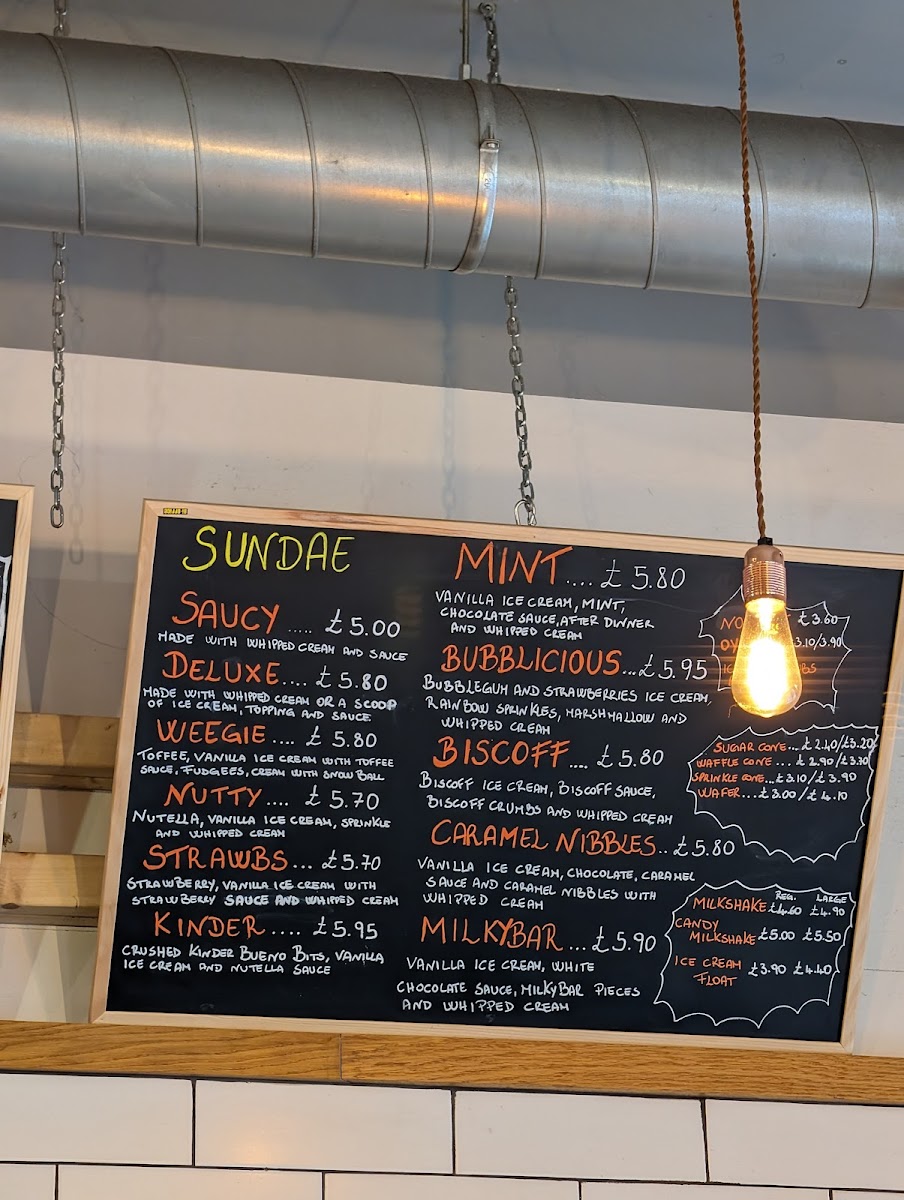 SUNDAE
SAUCY ..... £5.00
MADE WITH WHIPPED CREAM AND SAUCE
DELUXE.... £5.80
MADE WITH WHIPPED CREAM OR A SCOOP
OF ICE CREAM, TOPPING AND SAUCE
WEEGIE .... £5.80
TOFFEE, VANILLA ICE CREAM WITH TOFFEE
SAUCE, FUDGEES, CREAM WITH SNOW BALL
NUTTY.... £5.70
NUTELLA, VANILLA ICE CREAM, SPRINKLE
AND WHIPPED CREAM
STRAWBS... £5.70
STRAWBERRY, VANILLA ICE CREAM WITH
STRAWBERRY SAUCE AND WHIPPED CREAM
KINDER .... £5.95
CRUSHED KINDER BUENO BITS, VANILLA
ICE CREAM AND NUTELLA SAUCE
MINT.... £5.80
VANILLA ICE CREAM, MINT,
CHOCOLATE SAUCE, AFTER DINNER
AND WHIPPED CREAM
BUBBLICIOUS...£5.95
BUBBLEGUM AND STRAWBERRIES ICE CREAM,
RAINBOW SPRINKLES, MARSHMALLOW AND
WHIPPED CREAM
BISCOFF .... £5.80
BISCOFF ICE CREAM, BISCOFF SAUCE,
BISCOFF CRUMBS AND WHIPPED CREAM
CARAMEL NIBBLES..£5.80
VANILLA ICE CREAM, CHOCOLATE, CARAMEL
SAUCE AND CARAMEL NIBBLES WITH
WHIPPED CREAM
MILKYBAR ...£5.90
VANILLA ICE CREAM, WHITE
CHOCOLATE SAUCE, MILKYBAR PIECES
AND WHIPPED CREAM
£3.60
3.10/3.90
SUGAR CONE... £2.40/£3.20
WAFFLE CONE ... £2.90/£3.30
SPRINKLE CONE...£3.10/£3.90
WAFER...£3.00/£4.10
REG. LARGE
MILKSHAKE £4.60 £4.90
CANDY
MILKSHAKE £5.00 £5.50
ICE CREAM
FLOAT £3.90 £4.40